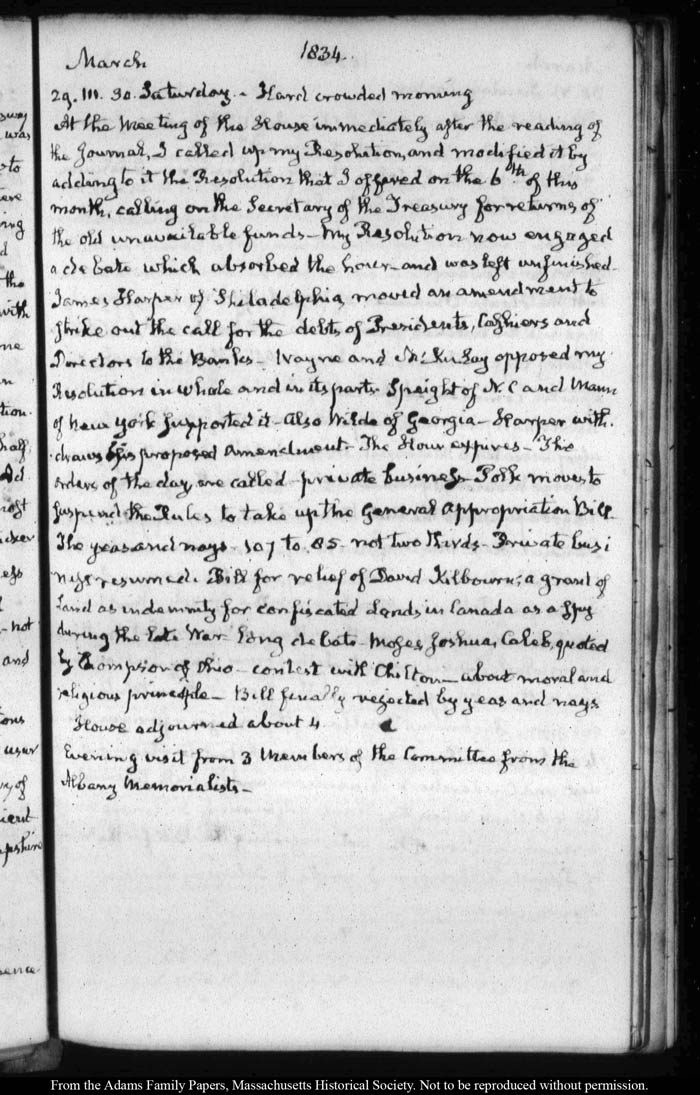 March 1834.
29. III. 30. Saturday. - Hard crowded morning
At the Meeting of the House immediately after the reading of
the Journal, I called up my Resolution, and modified it by
adding to it the Resolution that I offered on the 6th of this
month, calling on the Secretary of the Treasury for returns of
the old unavailable funds - My Resolution now engaged
a debate which absorbed the hour - and was left unfinished -
James Harper of Philadelphia, moved an amendment to
strike out the call for the debts of Presidents, Cashiers and
Directors to the Banks - Wayne and McKay opposed my
Resolution in whole and in its parts Speight of N. C and Mann
of New York supported it - Also Wilde of Georgia - Harper with.
draws his proposed Amendment - The Hour expires - The
orders of the day are called - private business - Polk moves to
suspend the Rules to take up the General Appropriation Bill
The yeas and nays - 107 to 85 - not two thirds - Private busi
ness resumed. Bill for relief of David Kilbourn; a grant of
Land as indemnity for confiscated Lands in Canada as a Spy
during the late War - Long debate - Moses, Joshua, Caleb, quoted
by Thompson of Ohio - contest with Chilton - about moral and
religious principle - Bill finally rejected by yeas and nays
House adjourned about 4
Evening visit from 3 Members of the Committee from the
Albany Memorialists -
sway
was
to
ere
ing
d
the
with
me
n
tion.
half,
Ad
most
icker
ess
- not
and
ions
usur
ry of
icent
mpshire
sence
From the Adams Family Papers, Massachusetts Historical Society. Not to be reproduced without permission.